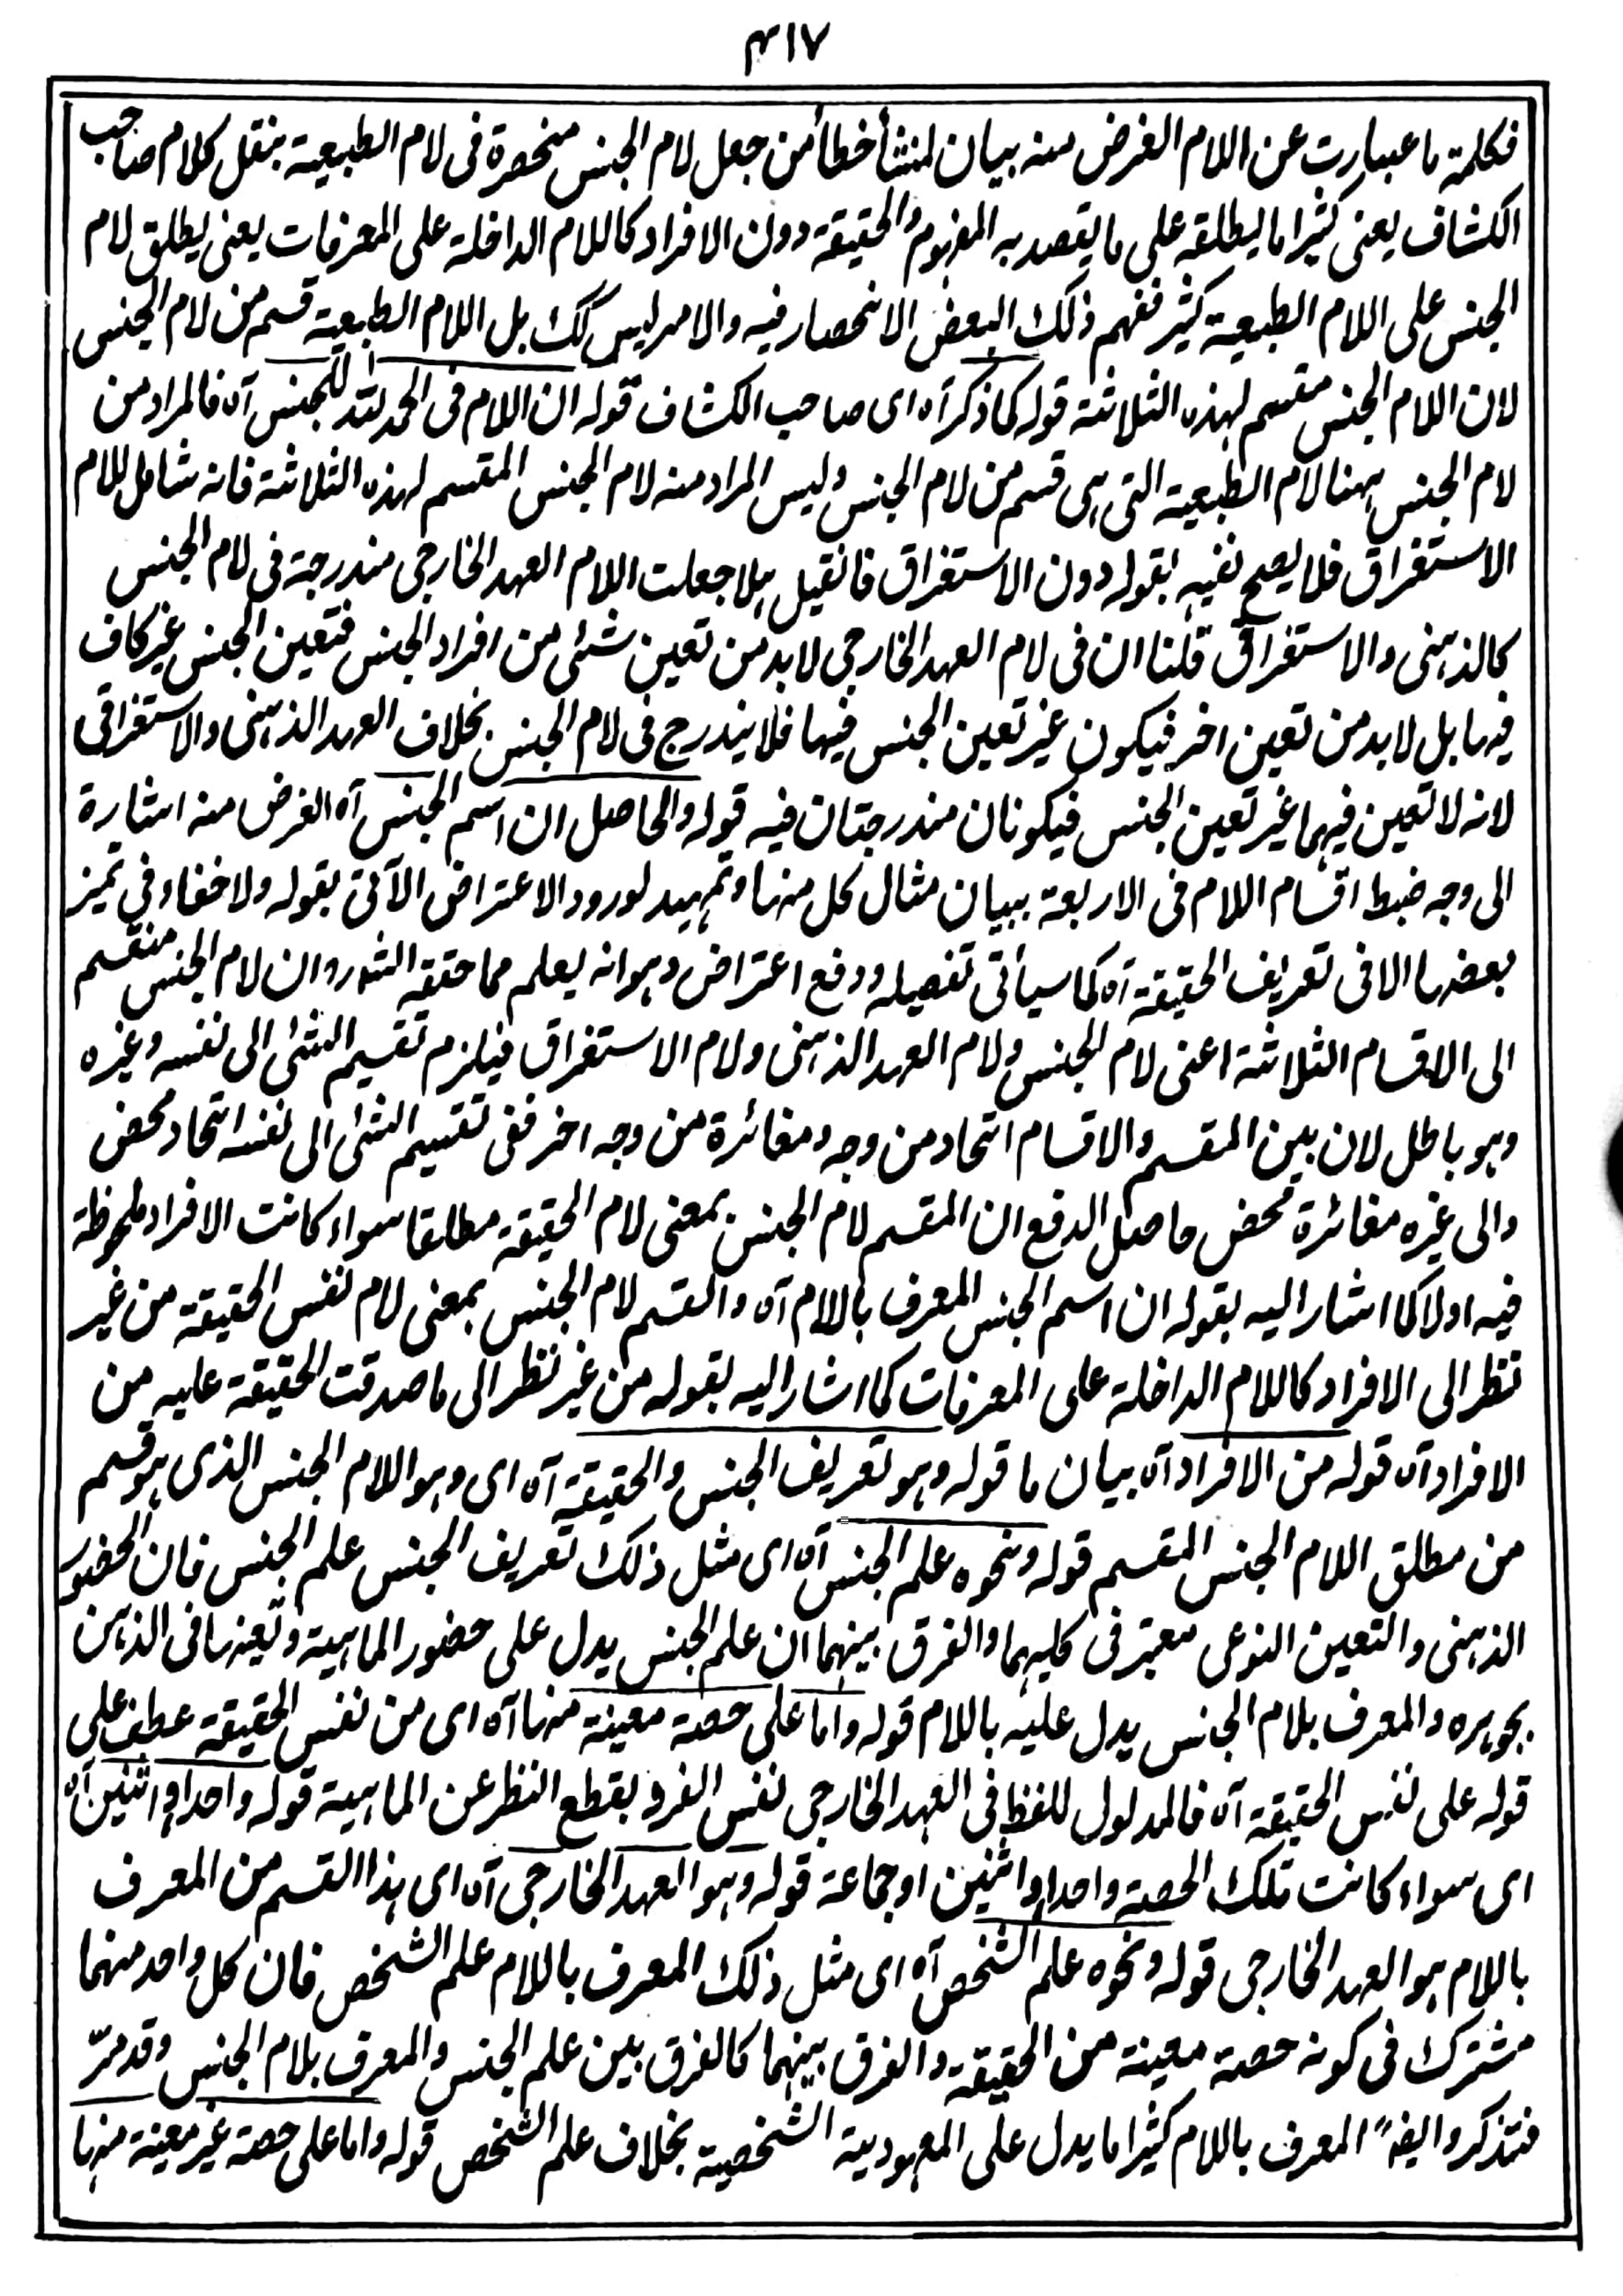 ٤١٧
فكلمة ما عبارت عن اللام الغرض منه بيان لمنشأ خطأ من جعل لام الجنس منحصرة فى لام الطبعية بنقل كلام صاحب
الكشاف يعنى كثيرا ما يطلقه على ما يقصد به المفهوم والحقيقة دون الافراد كاللام الداخلة على المعرفات يعنى يطلق لام
الجنس على اللام الطبعية كثير ففهم ذلك البعض الانحصار فيه والامر ليس كك بل اللام الطابعية قسم من لام الجنس
لان اللام الجنس مقسم لهذه الثلاثة قوله كما ذكر آه اى صاحب الكشاف قوله ان اللام فى الحمد لله للجنس آه فالمراد من
لام الجنس ههنا لام الطبعية التى هى قسم من لام الجنس وليس المراد منه لام الجنس المقسم لهذه الثلاثة فانه شامل للام
الاستغراق فلا يصح نفيه بقوله دون الاستغراق فانقيل هلا جعلت اللام العهد الخارجى مندرجة فى لام الجنس
كالذهنى والاستغراق قلنا ان فى لام العهد الخارجى لابد من تعين شئى من افراد الجنس فتعين الجنس غير كاف
فيها بل لابد من تعين اخر فيكون غير تعين الجنس فيها فلا يندرج فى لام الجنس بخلاف العهد الذهنى والاستغراقى
لانه لا تعين فيهما غير تعين الجنس فيكونان مندرجتان فيه قوله والحاصل ان اسم الجنس آه الغرض منه اشارة
الى وجه ضبط اقسام اللام فى الاربعة ببيان مثال كل منها وتمهيد لورود الاعتراض الآتى بقوله ولا خفاء فى تميز
بعضها الا فى تعريف الحقيقة آه كما سيأتى تفصيله ودفع اعتراض وهو انه يعلم مما حققه الشورو ان لام الجنس منقسم
الى الاقسام الثلاثة اعنى لام الجنس ولام العهد الذهنى ولام الاستغراق فيلزم تقسيم الشئى الى نفسه وغيره
وهو باطل لان بين المقسم والاقسام اتحاد من وجه ومغائرة من وجه اخر ففى تقسيم الشئى الى نفسه اتحاد محض
والى غيره مغائرة محض حاصل الدفع ان المقسم لام الجنس بمعنى لام الحقيقة مطلقا سواء كانت الافراد ملحوظة
فيه اولا كما اشار اليه بقوله ان اسم الجنس المعرف باللام آه والقسم لام الجنس بمعنى لام نفس الحقيقة من غير
نظر الى الافراد كاللام الداخلة على المعرفات كما اشار اليه بقوله من غير نظر الى ما صدقت الحقيقة عليه من
الافراد آه قوله من الافراد آه بيان ما قوله وهو تعريف الجنس والحقيقة آه اى وهو اللام الجنس الذى هو قسم
من مطلق اللام الجنس المقسم قوله ونحوه علم الجنس آه اى مثل ذلك تعريف الجنس علم الجنس فان الحضور
الذهنى والتعين النوعى معتبر فى كليهما والفرق بينهما ان علم الجنس يدل على حضور الماهية وتعينها فى الذهن
بجوهره والمعرف بلام الجنس يدل عليه باللام قوله واما على حصة معينة منها آه اى من نفس الحقيقة عطف على
قوله على نفس الحقيقة آه فالمدلول للفظ فى العهد الخارجى نفس الفرد بقطع النظر عن الماهية قوله واحدا او اثنين آه
اى سواء كانت تلك الحصة واحدا او اثنين او جماعة قوله وهو العهد الخارجى آه اى هذا القسم من المعرف
باللام هو العهد الخارجى قوله ونحوه علم الشخص آه اى مثل ذلك المعرف باللام علم الشخص فان كل واحد منهما
مشترك فى كونه حصة معينة من الحقيقة والفرق بينهما كالفرق بين علم الجنس والمعرف بلام الجنس وقد مرّ
فتذكر وايضاً المعرف باللام كثيرا ما يدل على المعهودية الشخصية بخلاف علم الشخص قوله واما على حصة غير معينة منها